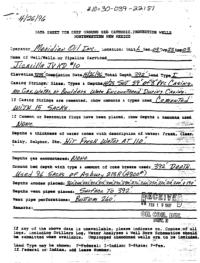 4/26/96 30-039-22151
DATA SHEET FOR DEEP GROUND BED CATHODIC PROTECTION WELLS
NORTHWESTERN NEW MEXICO
Operator Meridian Oil Inc. Location: Unit
Name of Well/Wells or Pipeline Serviced
Jicarilla JVKD #10
Elevation Completion Date 4/26/96 Total Depth 392 Land Type I
Casing Strings, Sizes, Types & Depths Set 59' of 8" PVC Casing.
No Gas, Water, or Boulders Were Encountered During Casing.
If Casing Strings are cemented, show amounts & types used Cemented
With 15 Sacks
If Cement or Bentonite Plugs have been placed, show depths & amounts used
None
Depths & thickness of water zones with description of water: Fresh, Clear,
Salty, Sulphur, Etc. Hit Fresh Water At 110'.
Depths gas encountered: None
Ground bed depth with type & amount of coke breeze used: 392' Depth
Used 96 Sacks of Asbury
Depths anodes placed:
Depths vent pipes placed: Surface To 392'
Vent pipe perforations: Bottom 260'
Remarks:
If any of the above data is unavailable, please indicate so. Copies of all
logs, including Drillers Log, Water Analyses & Well Bore Schematics should
be submitted when available. Unplugged abandoned wells are to be included.
Land Type may be shown: F-Federal; I-Indian; S-State; P-Fee.
If Federal or Indian, add Lease Number.